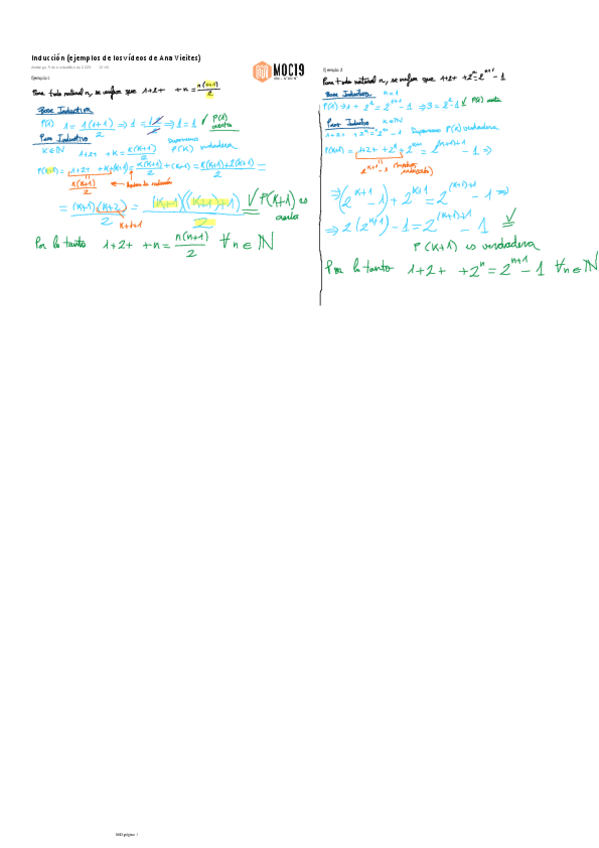 Inducción (ejemplos de los vídeos de Ana Vieites)
MOC19
Ejemplo 1
Para todo natural n, se verifica que 1+2+ +n = n(n+1)/2
Base Inductiva
P(1) 1 = 1(1+1)/2 ⇒ 1 = 1·2/2 ⇒ 1 = 1 ✓ P(1)
Paso Inductivo
K∈ℕ 1+2+ +K = K(K+1)/2 Suponemos P(K) verdadera
P(K+1) = 1+2+ +K+(K+1) = K(K+1)/2 + (K+1) = K(K+1)+2(K+1)/2 =
K(K+1)/2
= (K+1)(K+2)/2 = (K+1)((K+1)+1)/2 ✓ P(K+1) es cierta
K+1+1
Por lo tanto 1+2+ +n = n(n+1)/2 ∀n∈ℕ
Ejemplo 2
Para todo natural n, se verifica que 1+2+ +2ⁿ = 2ⁿ⁺¹ - 1
Base Inductiva n=1
Paso Inductivo K∈ℕ
1+2+ +2ᴷ = 2ᴷ⁺¹ - 1 Suponemos P(K) verdadera
P(K+1) = 1+2+ +2ᴷ + 2ᴷ⁺¹ = 2⁽ᴷ⁺¹⁾⁺¹ - 1 ⇒
2ᴷ⁺¹ - 1
⇒ (2ᴷ⁺¹ - 1) + 2ᴷ⁺¹ = 2⁽ᴷ⁺¹⁾⁺¹ - 1 ⇒
⇒ 2(2ᴷ⁺¹) - 1 = 2⁽ᴷ⁺¹⁾⁺¹ - 1 ✓
P(K+1) es verdadera
Por lo tanto 1+2+ +2ⁿ = 2ⁿ⁺¹ - 1 ∀n∈ℕ